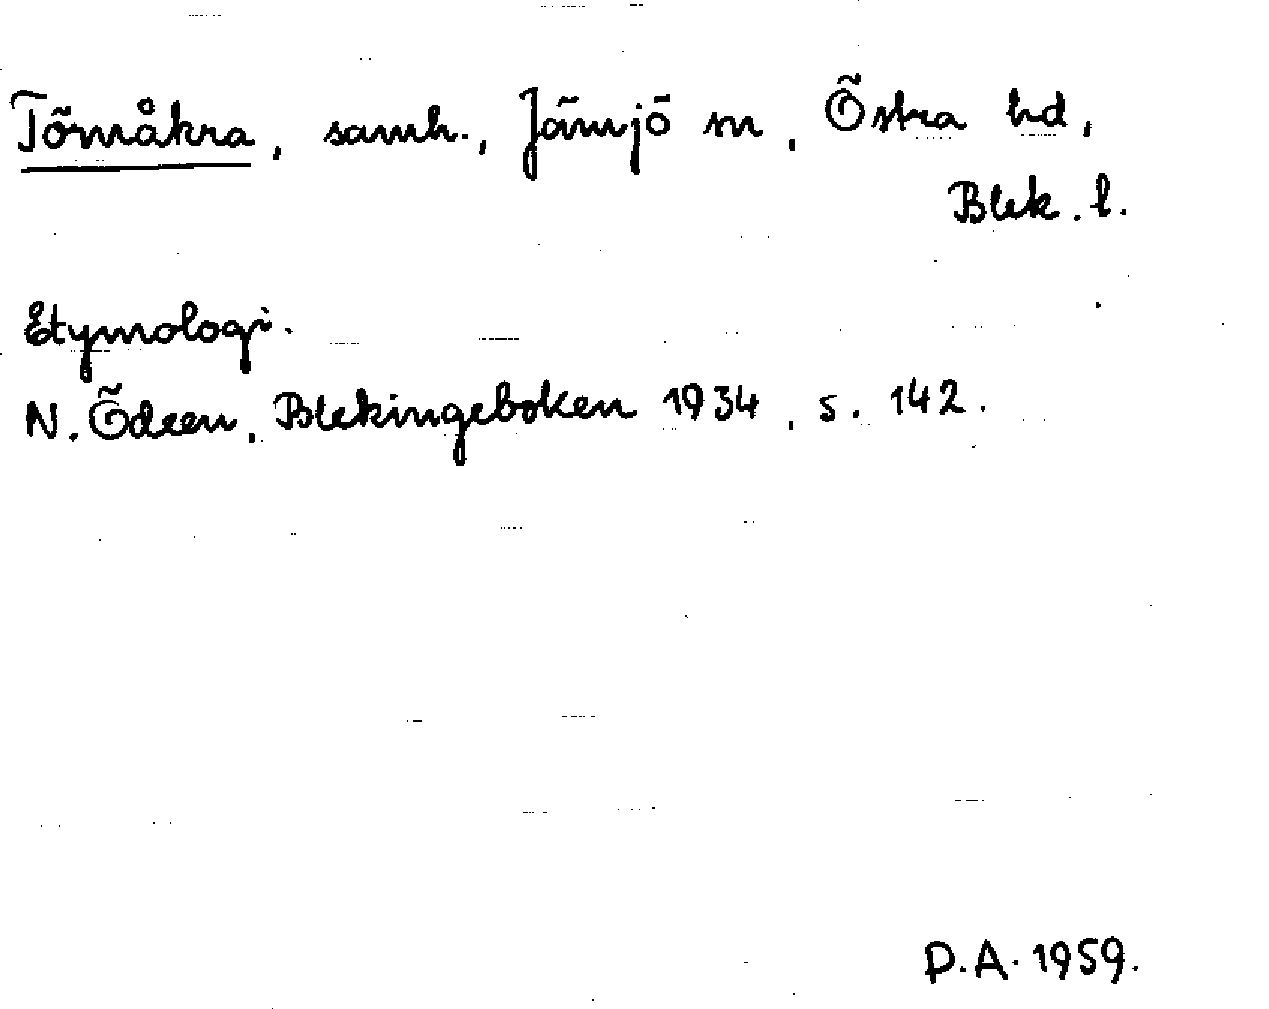 Törnåkra, samh., Jämjö sn, Östra hd,
Blek. l.
Etymologi.
N. Ödeen, Blekingeboken 1934, s. 142.
D.A. 1959.